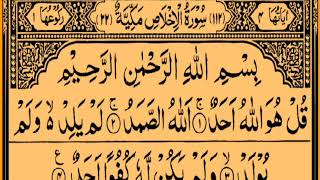 اٰيَاتُهَا ٤ (١١٢) سُوْرَةُ الْاِخْلَاصِ مَكِّيَّةٌ (٢٢) رُكُوْعُهَا ١
بِسْمِ اللهِ الرَّحْمٰنِ الرَّحِيْمِ
قُلْ هُوَ اللهُ اَحَدٌ ۚ ١ اَللهُ الصَّمَدُ ۚ ٢ لَمْ يَلِدْ ۙ وَلَمْ
يُوْلَدْ ۙ ٣ وَلَمْ يَكُنْ لَّهٗ كُفُوًا اَحَدٌ ۧ ٤